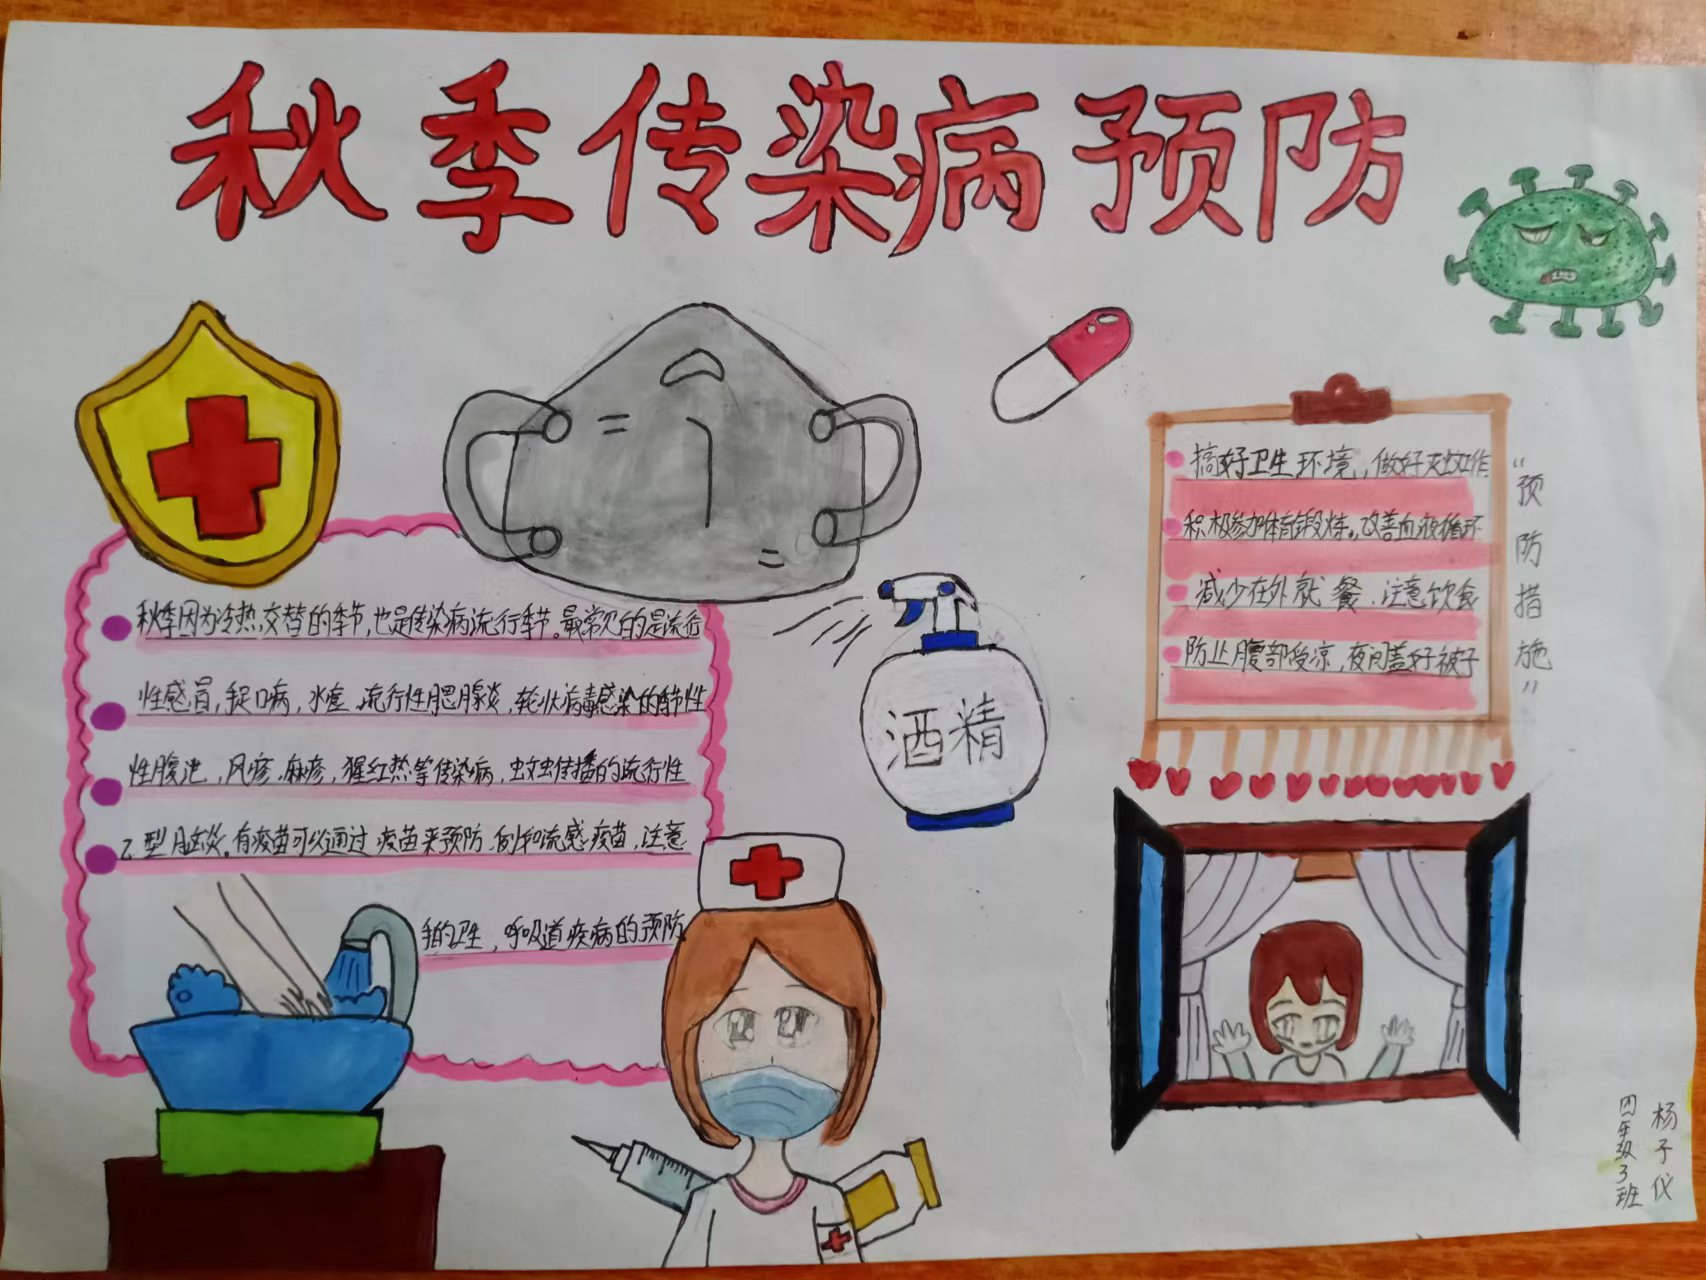 秋季传染病预防
秋季因为冷热交替的季节,也是传染病流行季节。最常见的是流行
性感冒,捉口病,水痘,流行性腮腺炎,轮状病毒感染的季节性
性腹泄,风疹,麻疹,猩红热等传染病,蚊虫传播的流行性
乙型脑炎。有疫苗可以通过疫苗来预防,例和流感疫苗,注意
手的卫生,呼吸道疾病的预防
酒精
搞好卫生环境,做好灭蚊工作
积极参加体育锻炼。改善血液循环
减少在外就餐,注意饮食
防止腹部受凉,夜间盖好被子
“预防措施”
杨子仪
四年级3班